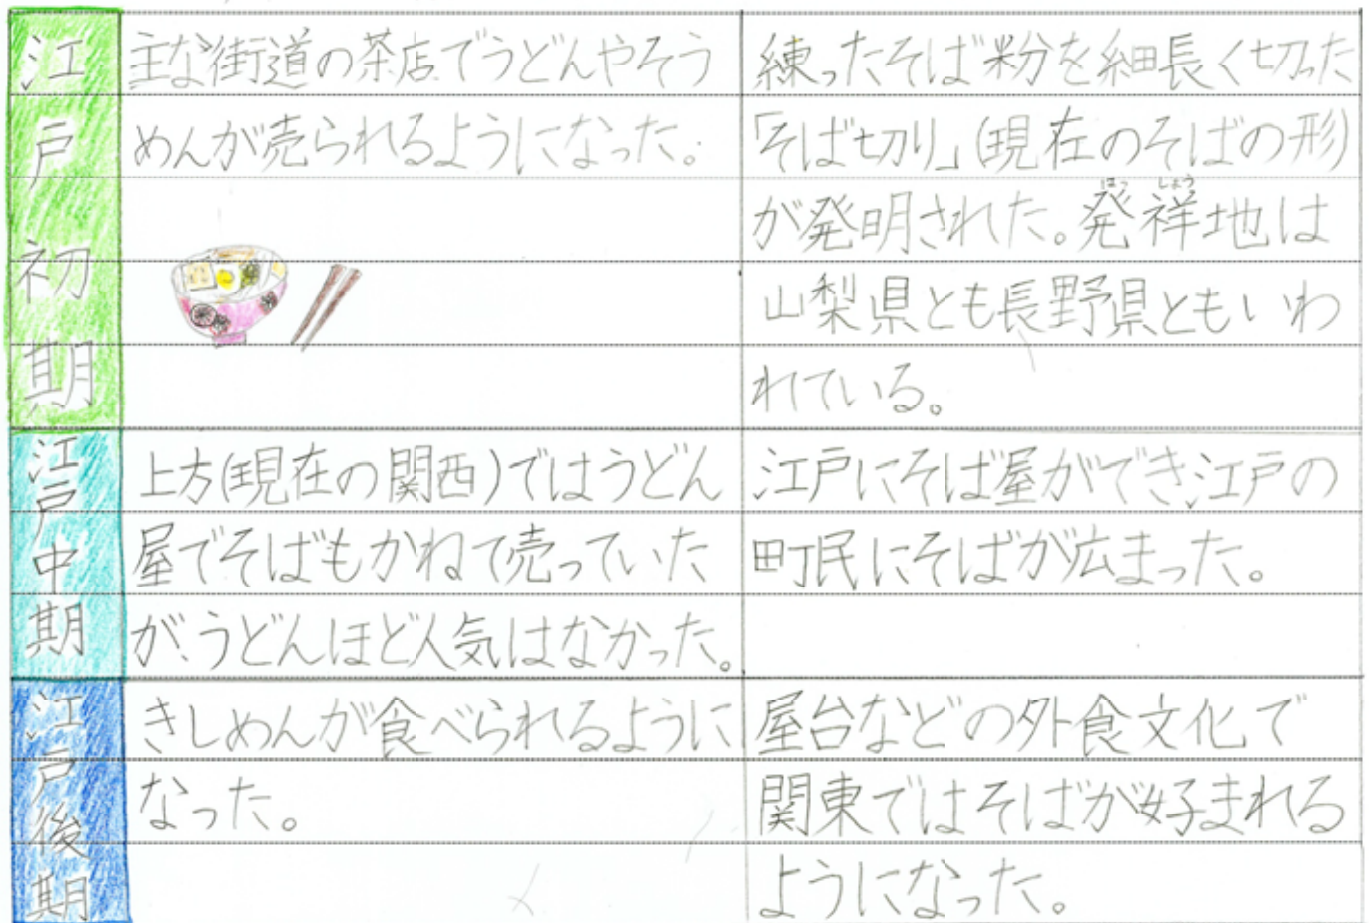 江戸初期
主な街道の茶店でうどんやそう
めんが売られるようになった。
練ったそば粉を細長く切った
「そば切り」(現在のそばの形)
が発明された。発祥地は
はっしょう
山梨県とも長野県ともいわ
れている。
江戸中期
上方(現在の関西)ではうどん
屋でそばもかねて売っていた
が、うどんほど人気はなかった。
江戸にそば屋ができ、江戸の
町民にそばが広まった。
江戸後期
きしめんが食べられるように
なった。
屋台などの外食文化で
関東ではそばが好まれる
ようになった。